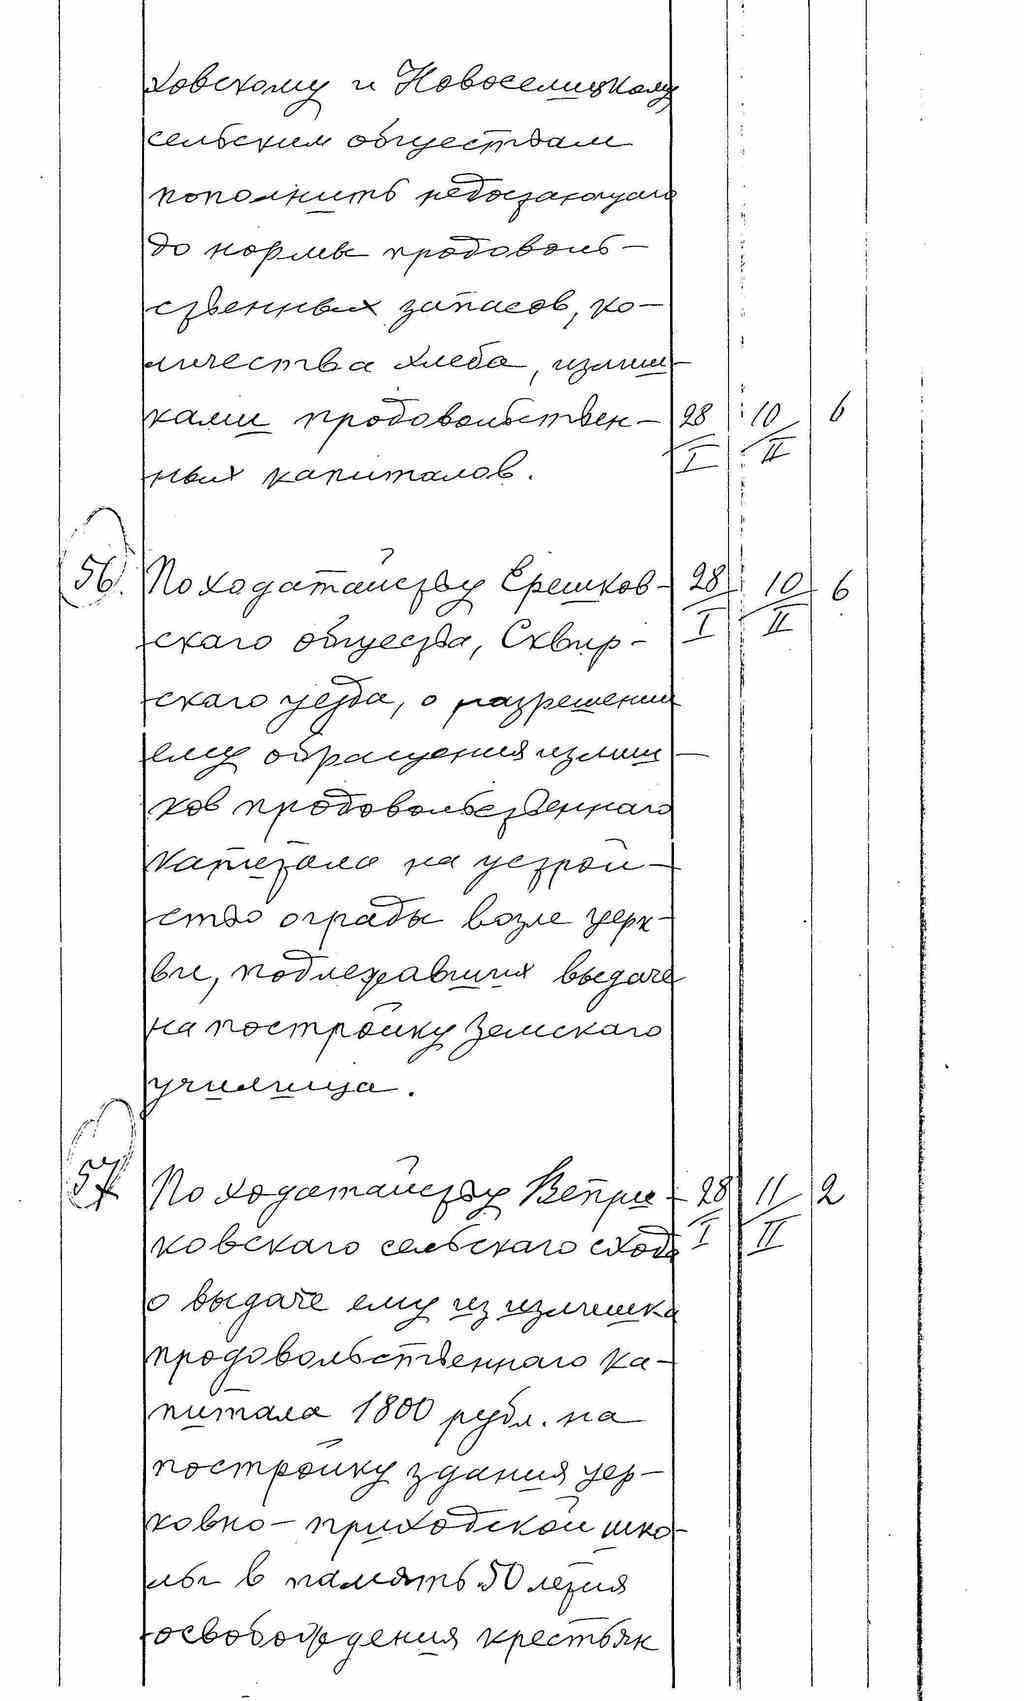 ховскому и Новоселицкому
сельским обществам
пополнить недостающаго
до нормы продоволь-
ственных запасов, ко-
личества хлеба, излиш-
ками продовольствен- 28/I 10/II 6
ных капиталов.
56. По ходатайству Ерешков- 28/I 10/II 6
скаго общества, Сквир-
скаго уезда, о разрешении
ему обращения излиш-
ков продовольственнаго
капитала на устрой-
ство ограды возле церк-
ви, подлежавших выдаче
на постройку Земскаго
училища.
57. По ходатайству Вепри- 28/I 11/II 2
ковскаго сельскаго схода
о выдаче ему из излишка
продовольственнаго ка-
питала 1800 рубл. на
постройку здания цер-
ковно-приходской шко-
лы в память 50 летия
освобождения крестьян